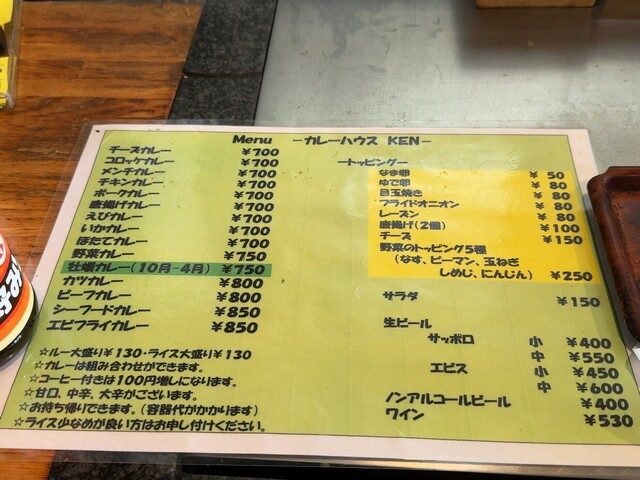 Menu　－カレーハウス KEN－
チーズカレー　￥700
コロッケカレー　￥700
メンチカレー　￥700
チキンカレー　￥700
ポークカレー　￥700
唐揚げカレー　￥700
えびカレー　￥700
いかカレー　￥700
ほたてカレー　￥700
野菜カレー　￥750
牡蠣カレー(10月-4月)　￥750
カツカレー　￥800
ビーフカレー　￥800
シーフードカレー　￥850
エビフライカレー　￥850
☆ルー大盛り￥130・ライス大盛り￥130
☆カレーは組み合わせができます。
☆コーヒー付きは100円増しになります。
☆甘口、中辛、大辛がございます。
☆お持ち帰りできます。(容器代がかかります)
☆ライス少なめが良い方はお申し付けください。
－トッピング－
なま卵　￥50
ゆで卵　￥80
目玉焼き　￥80
フライドオニオン　￥80
レーズン　￥80
唐揚げ(2個)　￥100
チーズ　￥150
野菜のトッピング5種
(なす、ピーマン、玉ねぎ
しめじ、にんじん)　￥250
サラダ　￥150
生ビール
サッポロ　小　￥400
中　￥550
エビス　小　￥450
中　￥600
ノンアルコールビール　￥400
ワイン　￥530